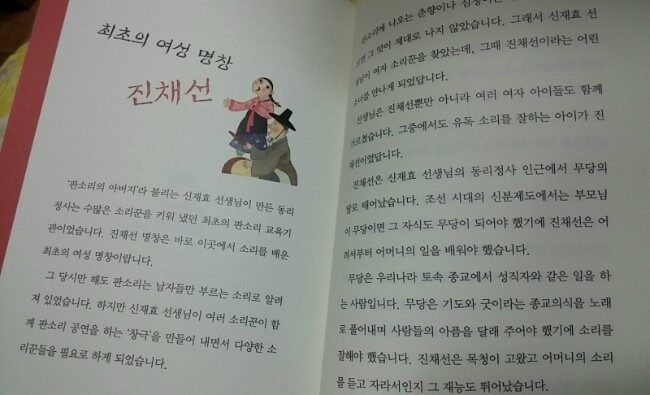 최초의 여성 명창
진채선
'판소리의 아버지'라 불리는 신재효 선생님이 만든 동리
정사는 수많은 소리꾼을 키워 냈던 최초의 판소리 교육기
관이었습니다. 진채선 명창은 바로 이곳에서 소리를 배운
최초의 여성 명창이랍니다.
그 당시만 해도 판소리는 남자들만 부르는 소리로 알려
져 있었습니다. 하지만 신재효 선생님이 여러 소리꾼이 함
께 판소리 공연을 하는 '창극'을 만들어 내면서 다양한 소
리꾼들을 필요로 하게 되었습니다.
판소리에 나오는 춘향이나
그 맛이 제대로 나지 않았습니다. 그래서 신재효 선
생님이 여자 소리꾼을 찾았는데, 그때 진채선이라는 어린
소녀를 만나게 되었답니다.
선생님은 진채선뿐만 아니라 여러 여자 아이들도 함께
가르쳤습니다. 그중에서도 유독 소리를 잘하는 아이가 진
채선이었답니다.
진채선은 신재효 선생님의 동리정사 인근에서 무당의
딸로 태어났습니다. 조선 시대의 신분제도에서는 부모님
이 무당이면 그 자식도 무당이 되어야 했기에 진채선은 어
려서부터 어머니의 일을 배워야 했습니다.
무당은 우리나라 토속 종교에서 성직자와 같은 일을 하
는 사람입니다. 무당은 기도와 굿이라는 종교의식을 노래
로 풀어내며 사람들의 아픔을 달래 주어야 했기에 소리를
잘해야 했습니다. 진채선은 목청이 고왔고 어머니의 소리
를 듣고 자라서인지 그 재능도 뛰어났습니다.